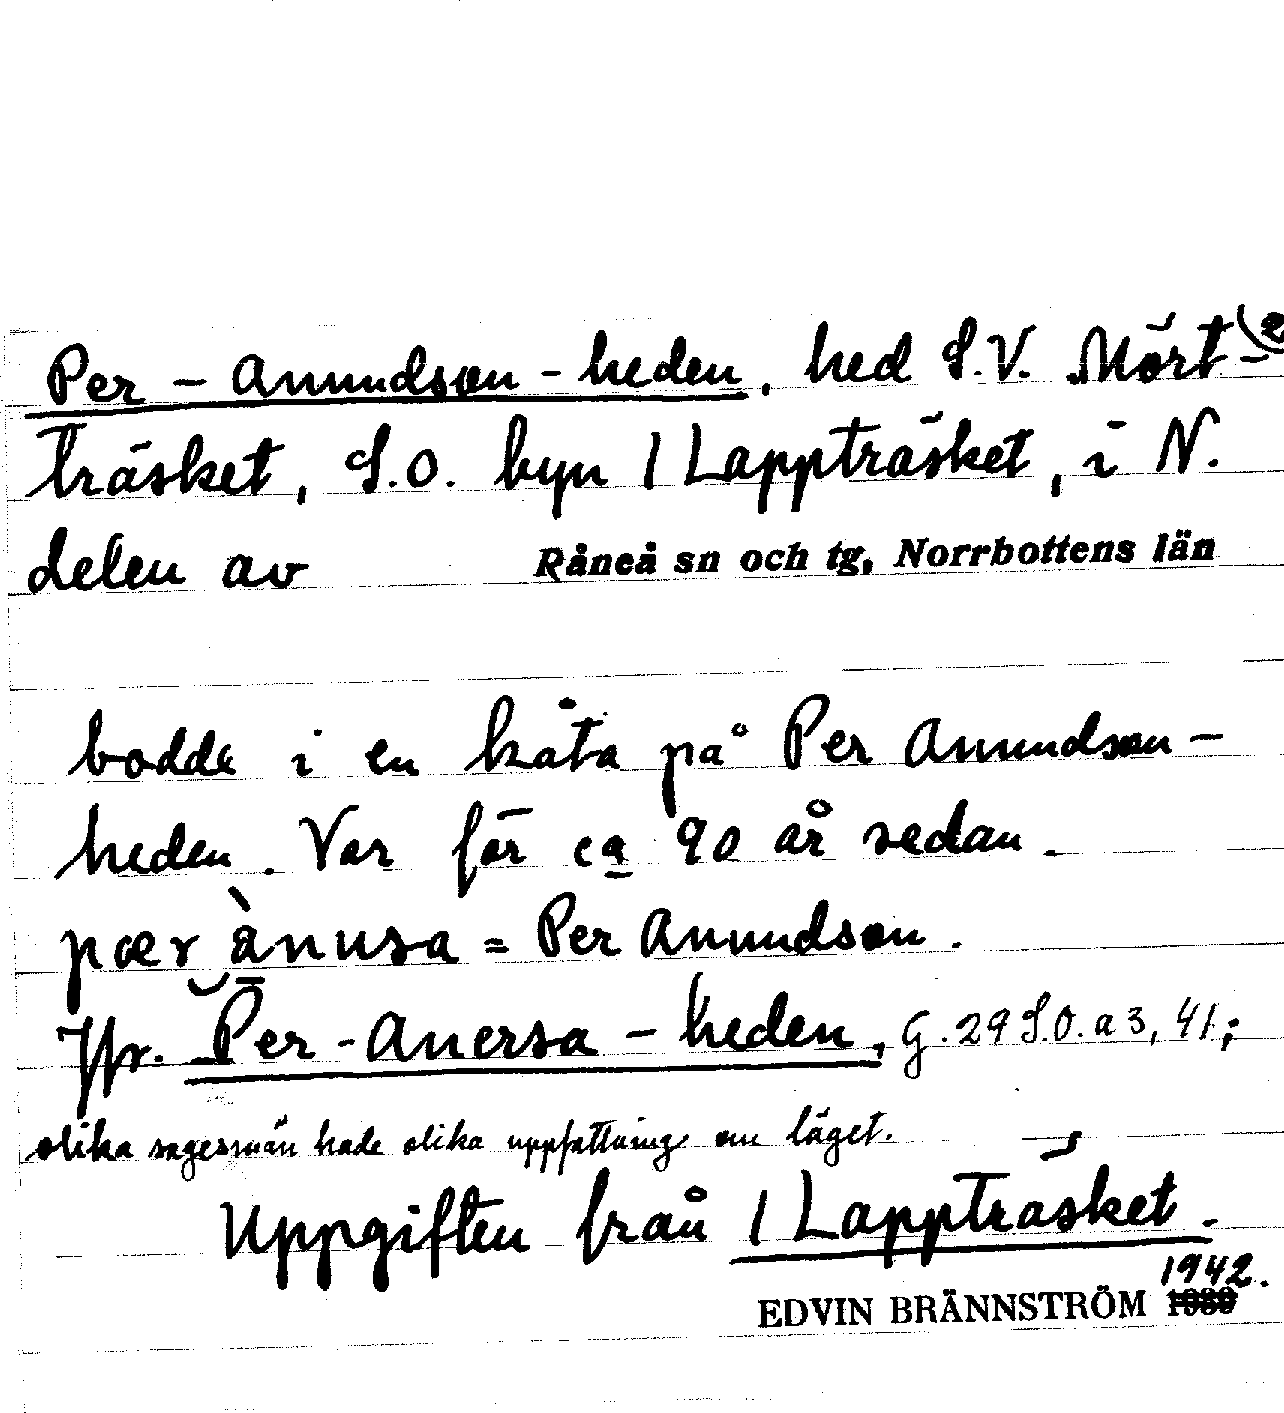 Per - Anundson - heden, hed S.V. Mört- (2
träsket, S.O. byn 1 Lappträsket, i N.
delen av Råneå sn och tg, Norrbottens län
bodde i en kåta på Per Anundson -
heden. Var för ca 90 år sedan.
pær ànusa = Per Anundson.
Jfr. Per - Anersa - heden, G. 29 S.O. a 3, 41;
olika sagesmän hade olika uppfattning om läget.
Uppgiften från 1 Lappträsket.
1942.
EDVIN BRÄNNSTRÖM 1930